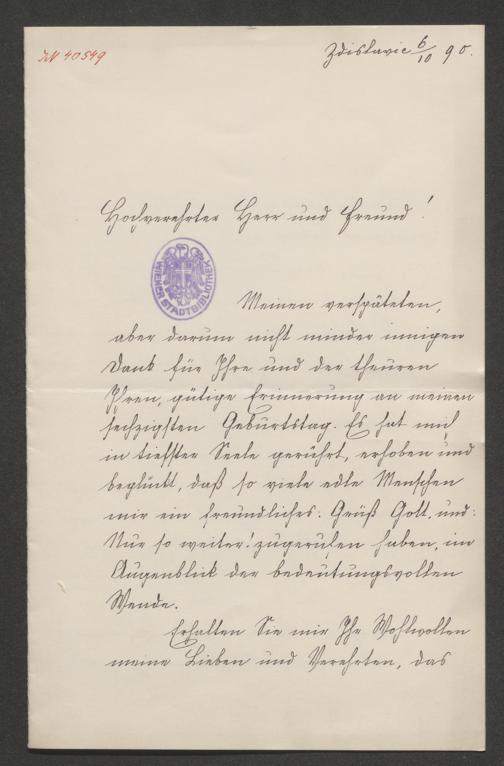 IN 40549
Zdislavic 6/10 90.
Hochverehrter Herr und Freund!
WIENER STADTBIBLIOTHEK
Meinen verspäteten,
aber darum nicht minder innigen
Dank für Ihre und der theuren
Ihren, gütige Erinnerung an meinen
sechzigsten Geburtstag. Es hat mich
in tiefster Seele gerührt, erhoben und
beglückt, daß so viele edle Menschen
mir ein freundliches: Grüß Gott. und:
Nur so weiter! zugerufen haben, im
Augenblick der bedeutungsvollen
Wende.
Erhalten Sie mir Ihr Wohlwollen
meine Lieben und Verehrten, das